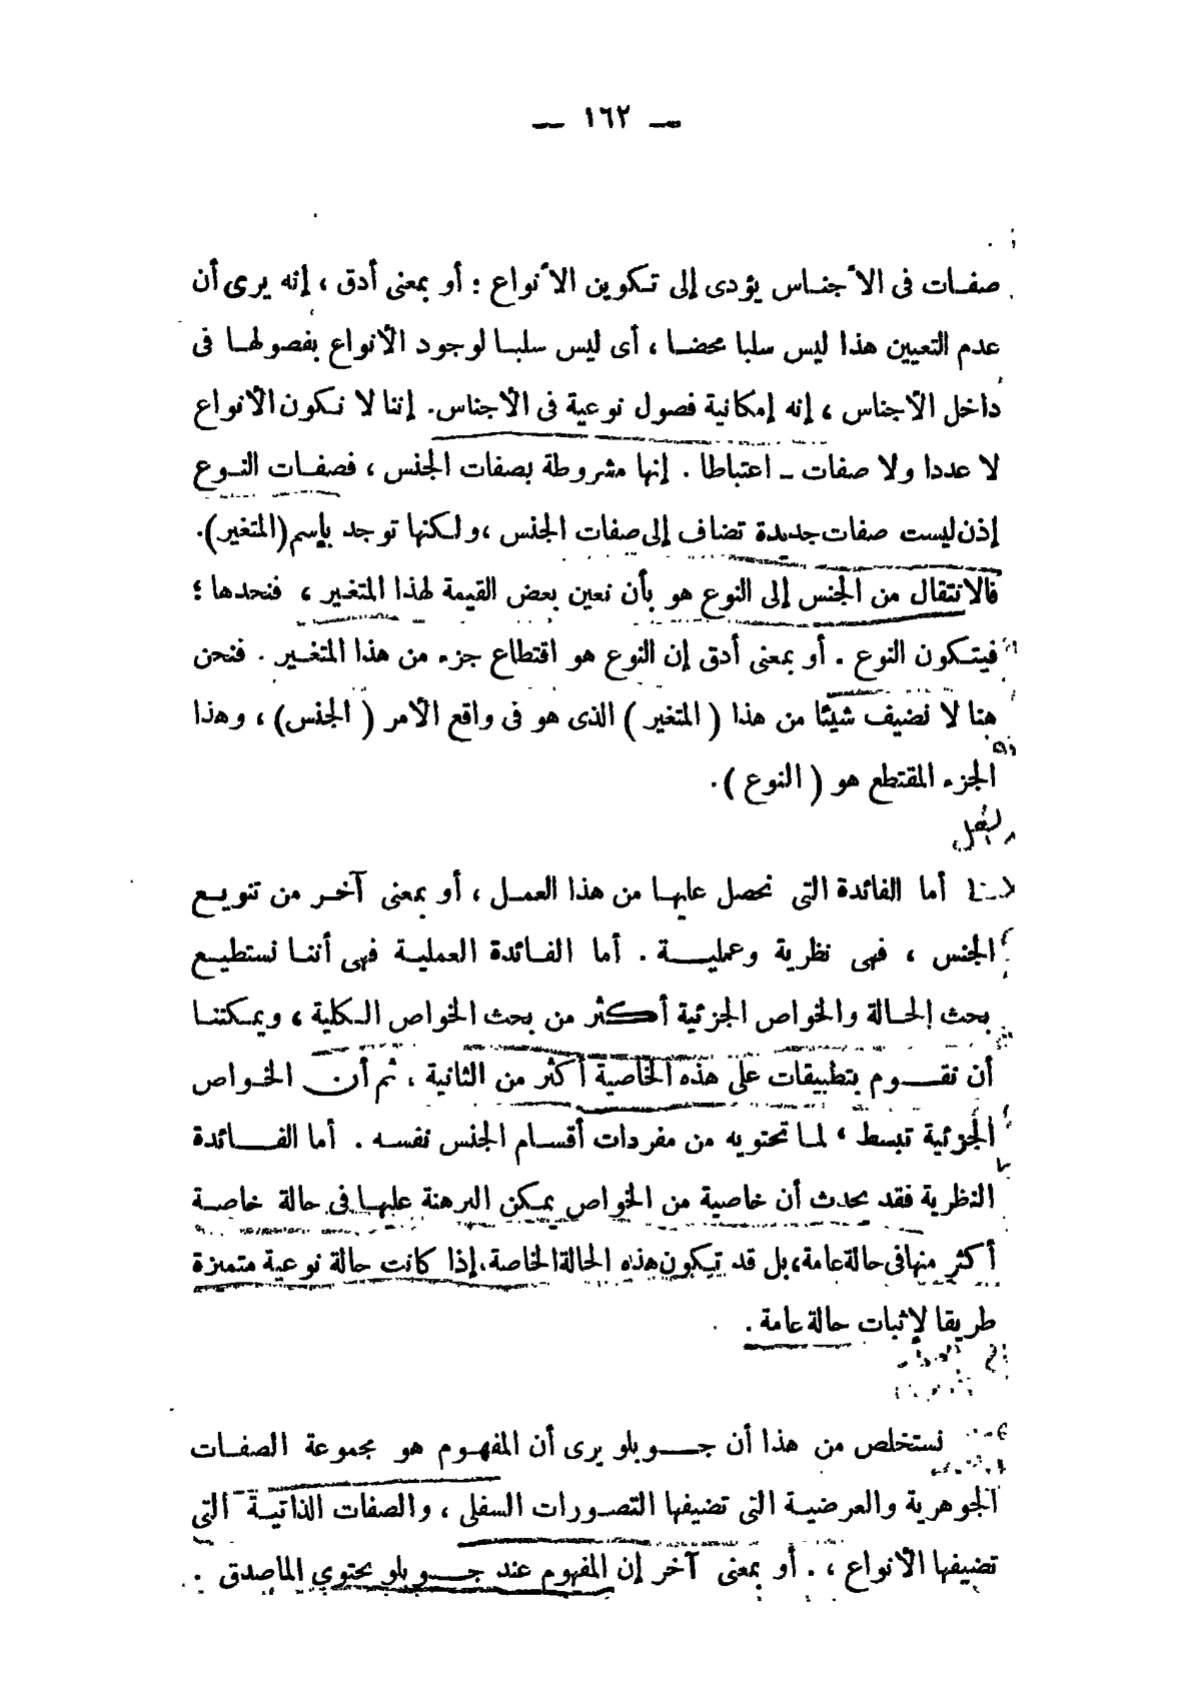 — ١٦٢ —
صفات فى الأجناس يؤدى إلى تكوين الأنواع : أو بمعنى أدق ، إنه يرى أن
عدم التعيين هذا ليس سلبا محضا ، أى ليس سلبا لوجود الأنواع بفصولها فى
داخل الأجناس ، إنه إمكانية فصول نوعية فى الأجناس. إننا لا نكون الأنواع
لا عددا ولا صفات ـ اعتباطا . إنها مشروطة بصفات الجنس ، فصفات النوع
إذن ليست صفات جديدة تضاف إلى صفات الجنس ، ولكنها توجد بإسم (المتغير).
فالانتقال من الجنس إلى النوع هو بأن نعين بعض القيمة لهذا المتغير ، فنحدها ؛
فيتكون النوع . أو بمعنى أدق إن النوع هو اقتطاع جزء من هذا المتغير . فنحن
هنا لا نضيف شيئا من هذا ( المتغير ) الذى هو فى واقع الأمر ( الجنس) ، وهذا
الجزء المقتطع هو ( النوع ).
أما الفائدة التى نحصل عليها من هذا العمل ، أو بمعنى آخر من تنويع
الجنس ، فهى نظرية وعملية . أما الفائدة العملية فهى أننا نستطيع
بحث الحالة والخواص الجزئية أكثر من بحث الخواص الكلية ، ويمكننا
أن نقوم بتطبيقات على هذه الخاصية أكثر من الثانية ، ثم أن الخواص
الجزئية تبسط ، لما تحتويه من مفردات أقسام الجنس نفسه . أما الفائدة
النظرية فقد يحدث أن خاصية من الخواص يمكن البرهنة عليها فى حالة خاصة
أكثر منها فى حالة عامة ، بل قد تكون هذه الحالة الخاصة ، إذا كانت حالة نوعية متميزة
طريقا لإثبات حالة عامة .
نستخلص من هذا أن جوبلو يرى أن المفهوم هو مجموعة الصفات
الجوهرية والعرضية التى تضيفها التصورات السفلى ، والصفات الذاتية التى
تضيفها الأنواع ، . أو بمعنى آخر إن المفهوم عند جوبلو يحتوي الماصدق .